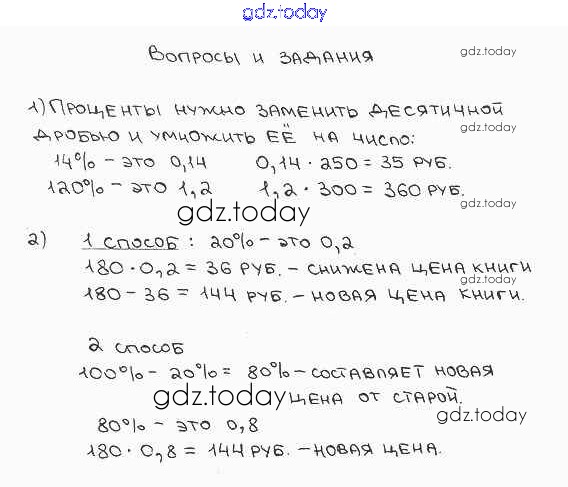 gdz.today
Вопросы и задания gdz.today
1) Проценты нужно заменить десятичной
дробью и умножить её на число: gdz.today
14% - это 0,14 0,14 · 250 = 35 руб.
120% - это 1,2 1,2 · 300 = 360 руб.
gdz.today gdz.today
2) 1 способ: 20% - это 0,2
180 · 0,2 = 36 руб. - снижена цена книги
gdz.today
180 - 36 = 144 руб. - новая цена книги.
2 способ
100% - 20% = 80% - составляет новая
gdz.today цена от старой.
80% - это 0,8 gdz.today
180 · 0,8 = 144 руб. - новая цена.
gdz.today